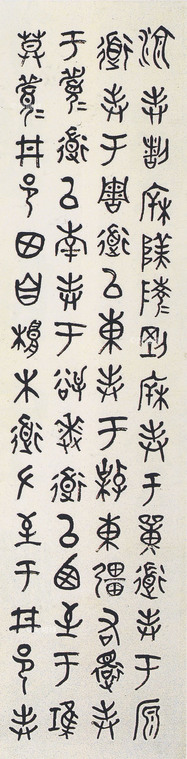 封𣏟陕陵剛𣏟封于單道封于原
道封于周道以東封于東疆右還封
于履道以南封于逨道以西至于堆
莫履井邑田自根木道左至于井邑封